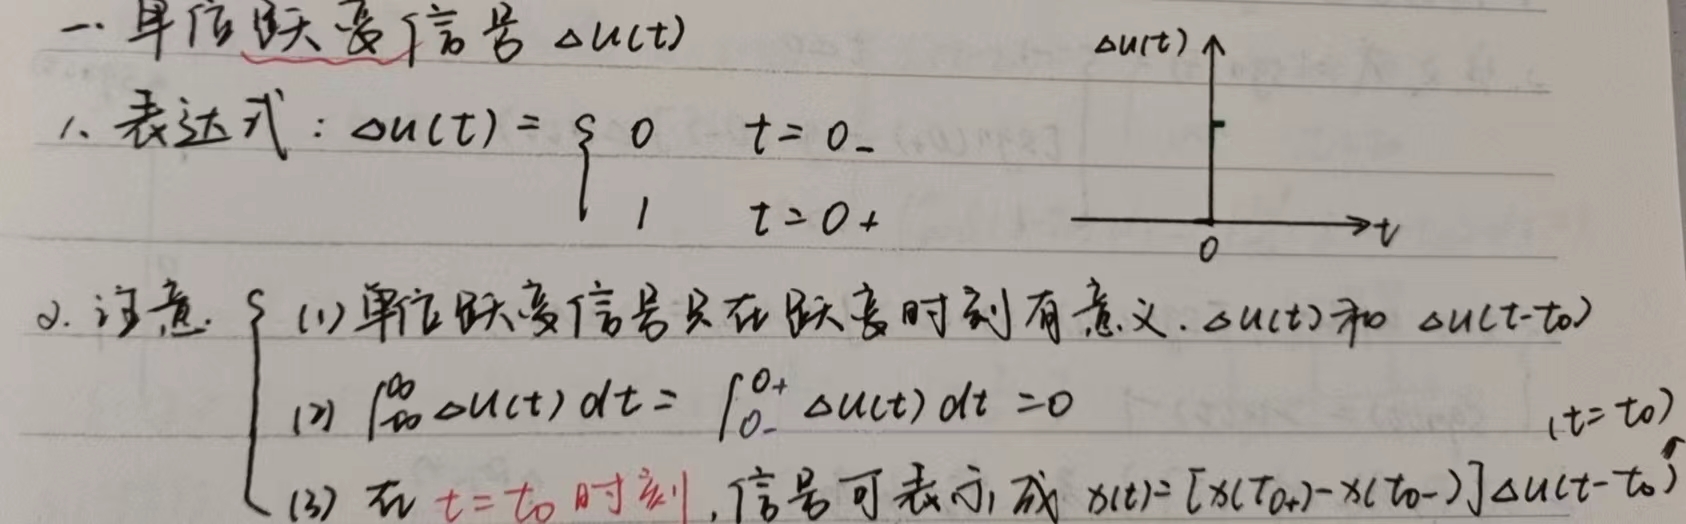 一. 单位跃变信号 Δu(t)
Δu(t)
1. 表达式: Δu(t) = { 0 t = 0-
1 t = 0+
0 t
2. 注意. { (1) 单位跃变信号只在跃变时刻有意义. Δu(t) 和 Δu(t-t0)
(2) ∫_{-∞}^{∞} Δu(t) dt = ∫_{0-}^{0+} Δu(t) dt = 0
(t = t0)
(3) 在 t = t0 时刻, 信号可表示成 x(t) = [x(T0+) - x(t0-)] Δu(t-t0)